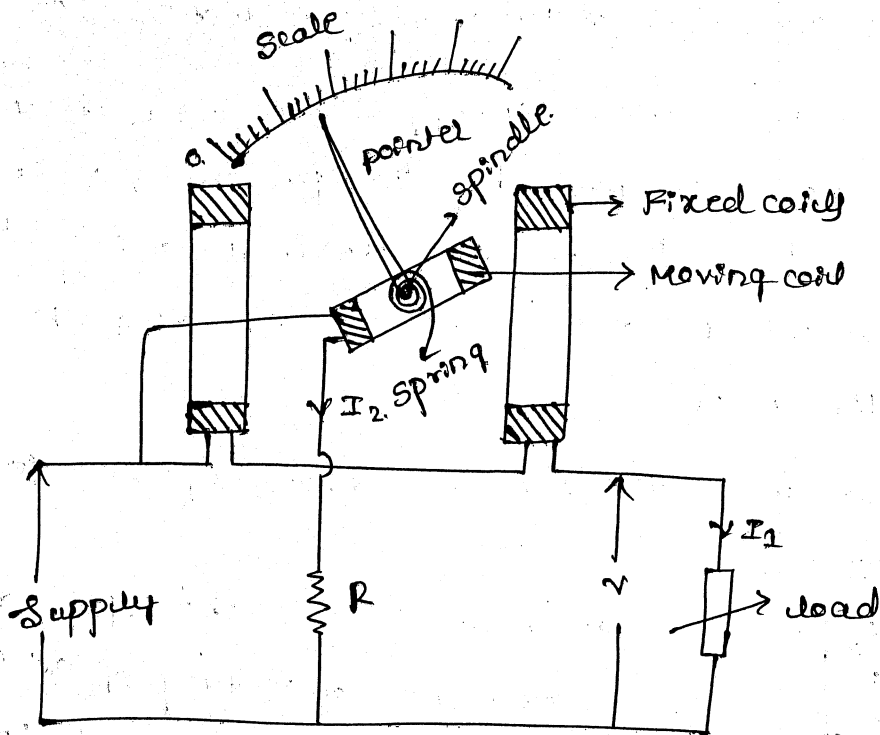 Scale
0.
pointer
spindle.
Fixed coils
Moving coil
Spring
I2.
I1
Supply
R
V
load